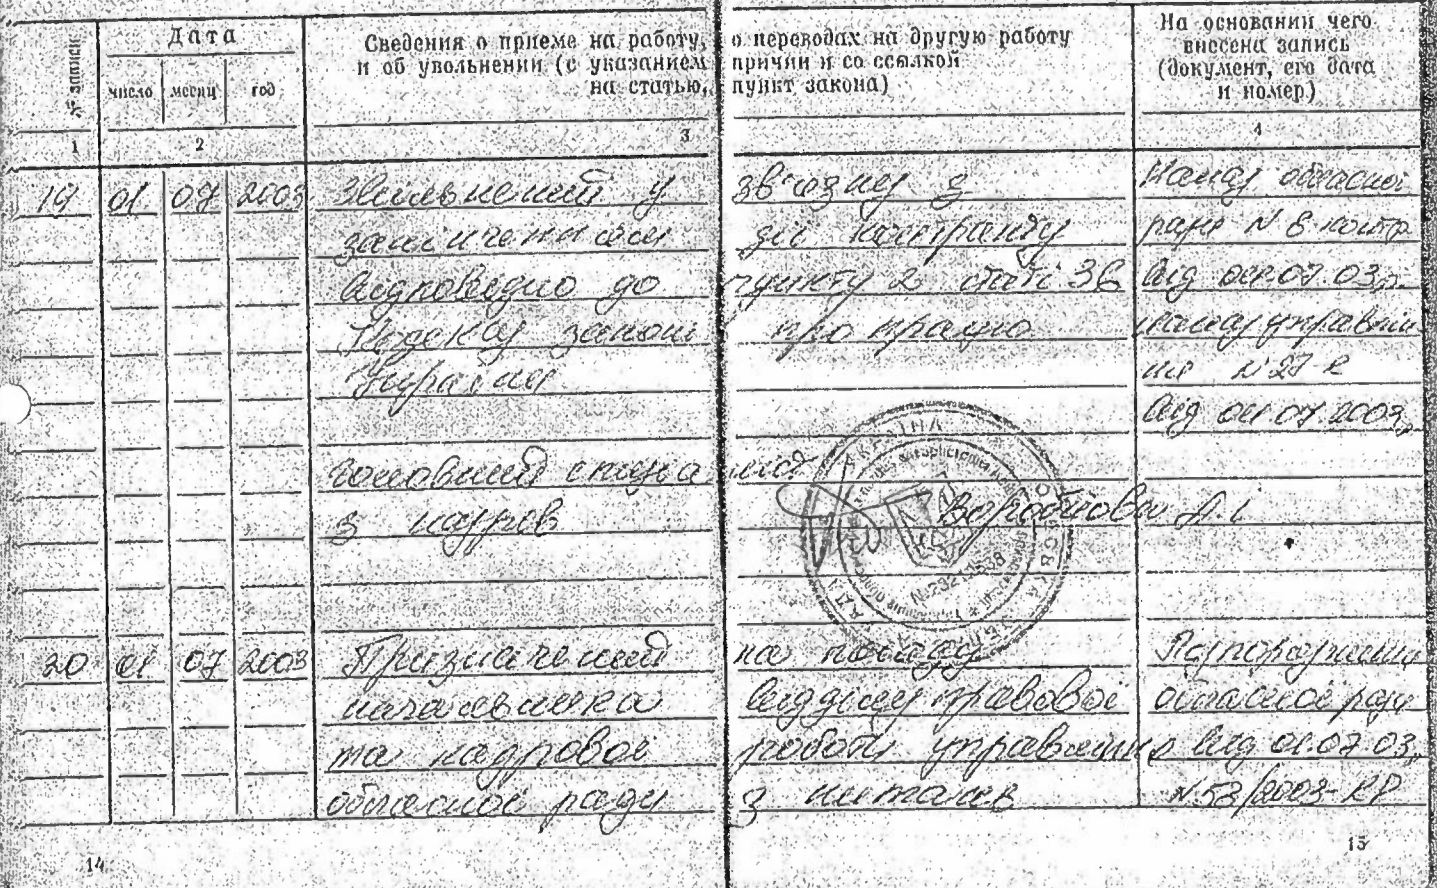 № записи
Дата
число месяц год
Сведения о приеме на работу, о переводах на другую работу
и об увольнении (с указанием причин и со ссылкой
на статью, пункт закона)
На основании чего
внесена запись
(документ, его дата
и номер)
1 2 3 4
19 01 07 2003 Звільнений у зв'язку з
закінченням дії контракту
відповідно до пункту 2 статті 36
Кодексу законів про працю
України
Наказ обласної
ради N 6-контр
від 01.07.03р.
наказ управлін
ня N 27-к
від 01.07.2003р
головний спеціаліст
з кадрів Воробйова Л.І.
УКРАЇНА
20 01 07 2003 Призначений на посаду
начальника відділу правової
та кадрової роботи управління
обласної ради з питань
Розпорядження
обласної ради
від 01.07.03р
N 53/2003-КР
14
15